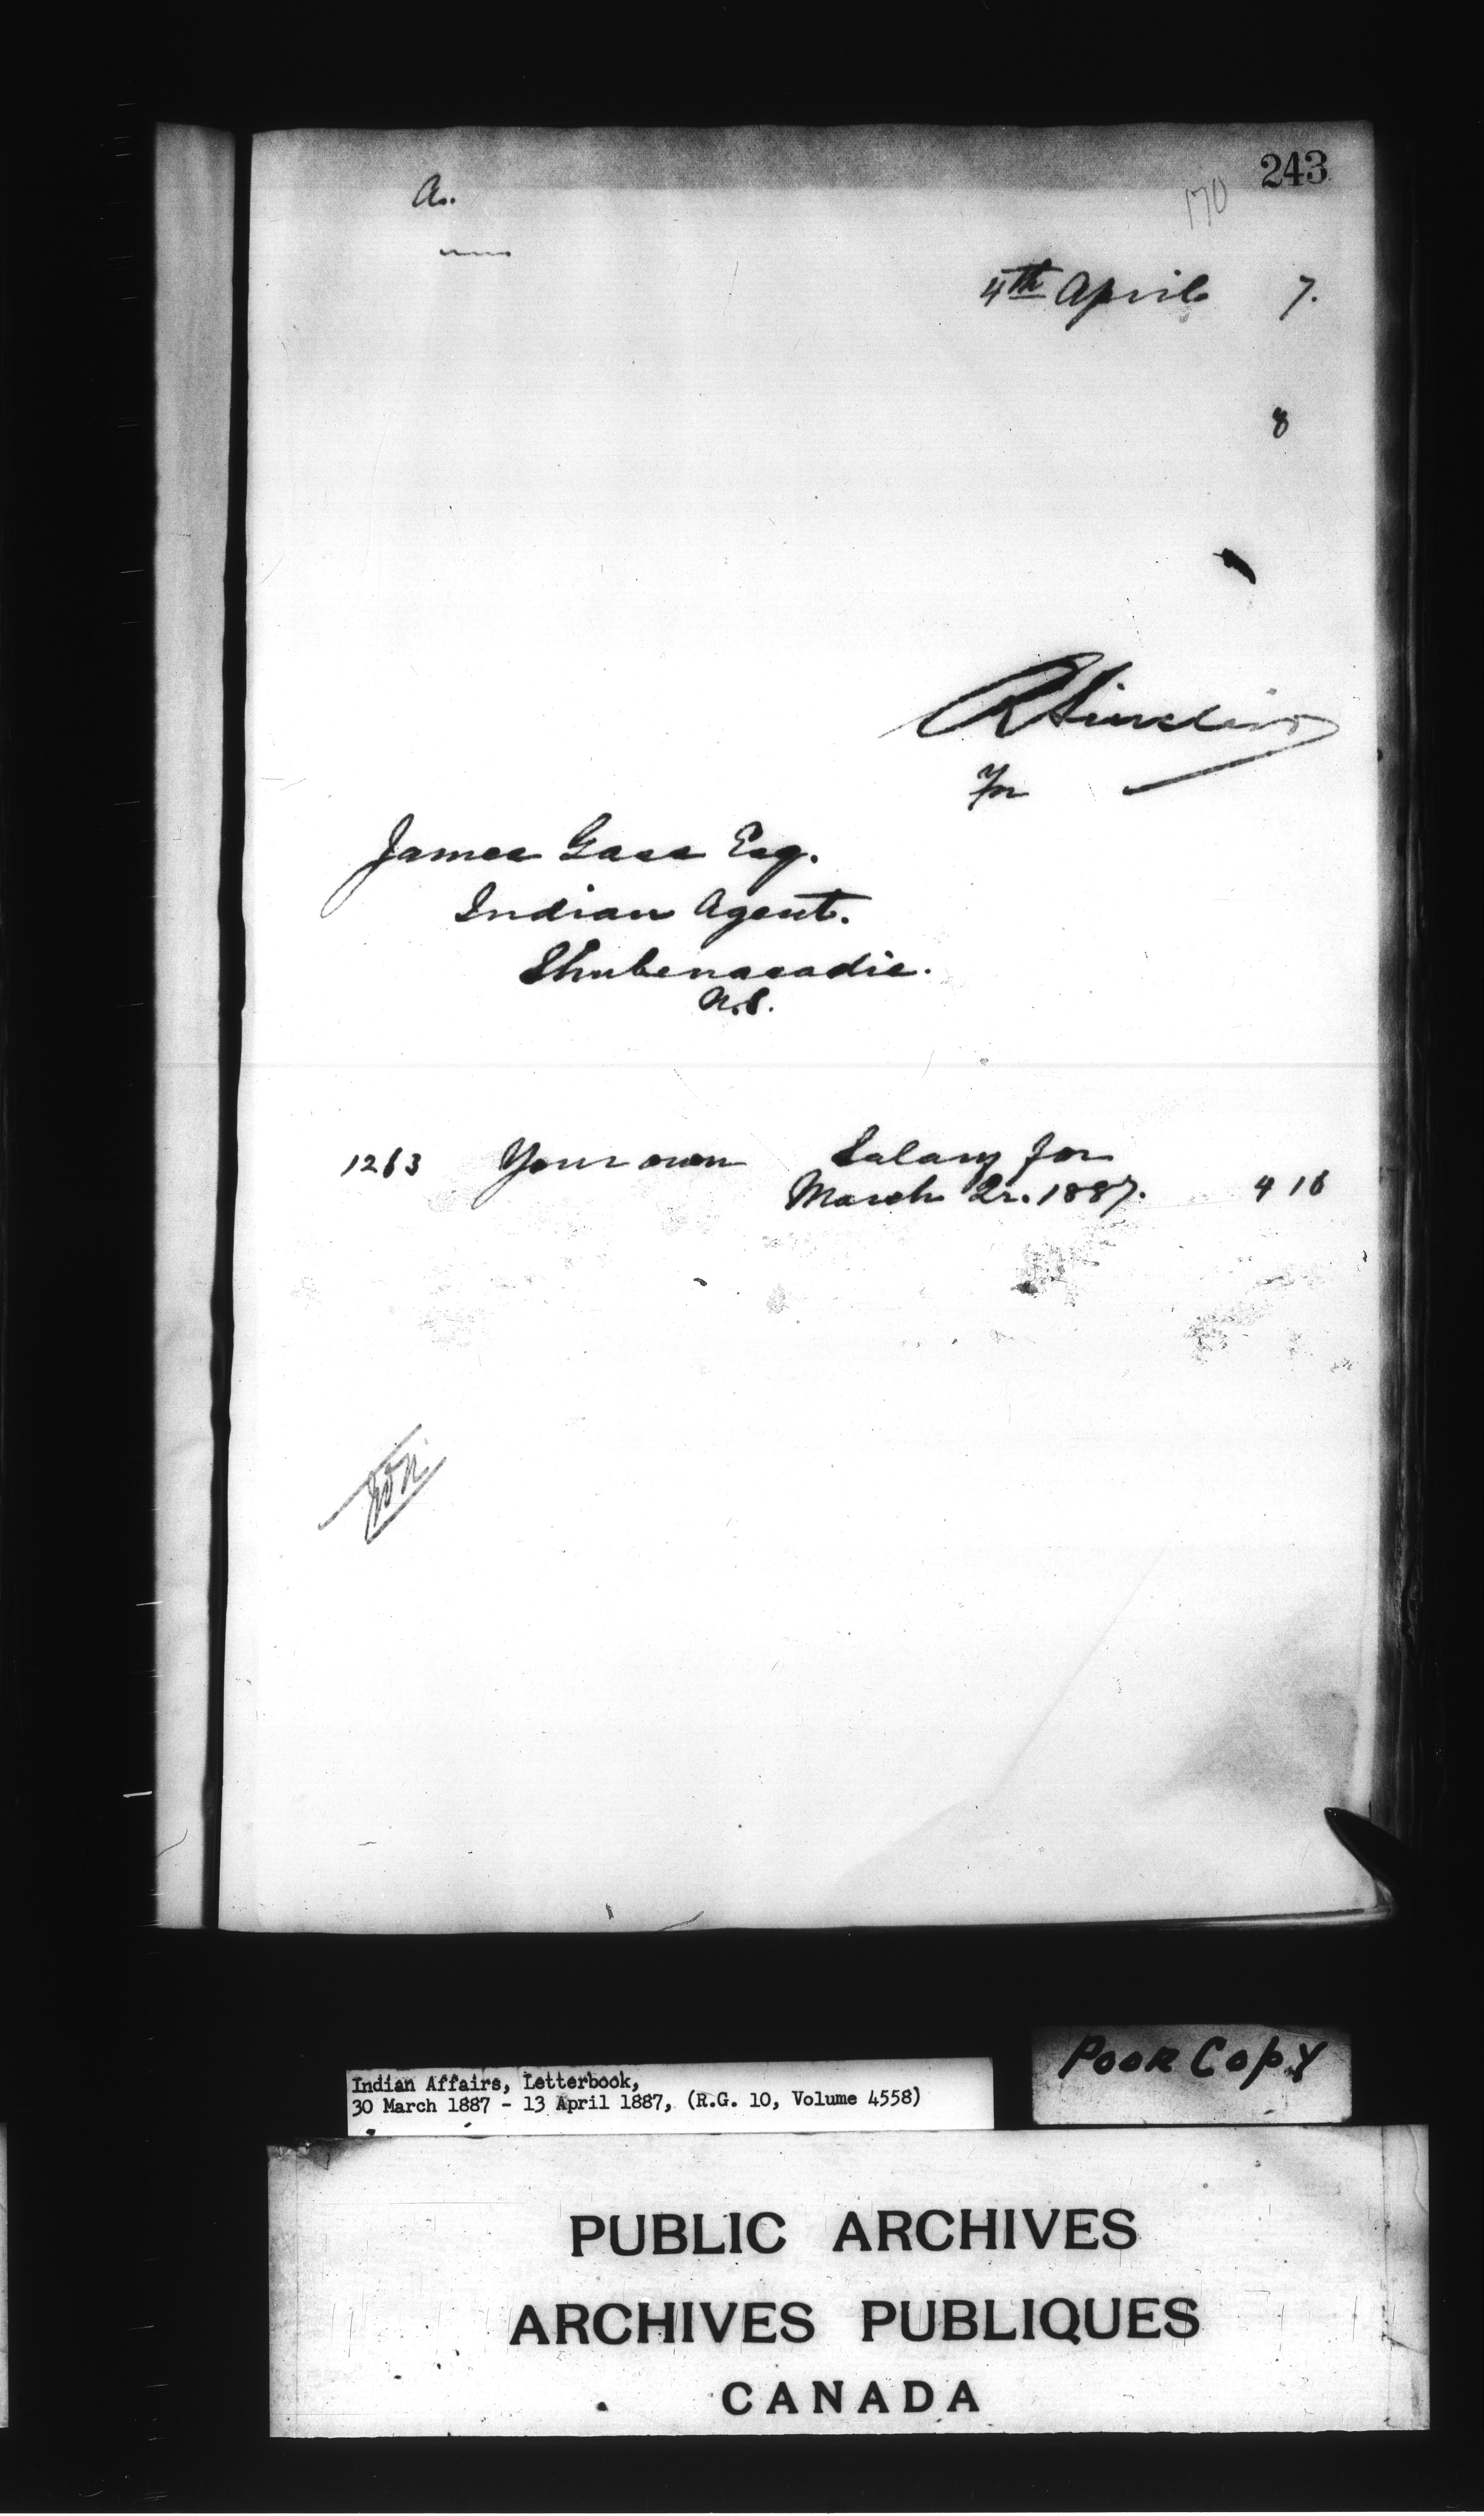 243
A.
170
4th April 7.
8
R Sinclair
For
James Gass Esq.
Indian Agent.
Shubenacadie.
N.S.
1263 Your own Salary for
March Qr. 1887. 4 16
Poor Copy
Indian Affairs, Letterbook,
30 March 1887 - 13 April 1887, (R.G. 10, Volume 4558)
PUBLIC ARCHIVES
ARCHIVES PUBLIQUES
CANADA